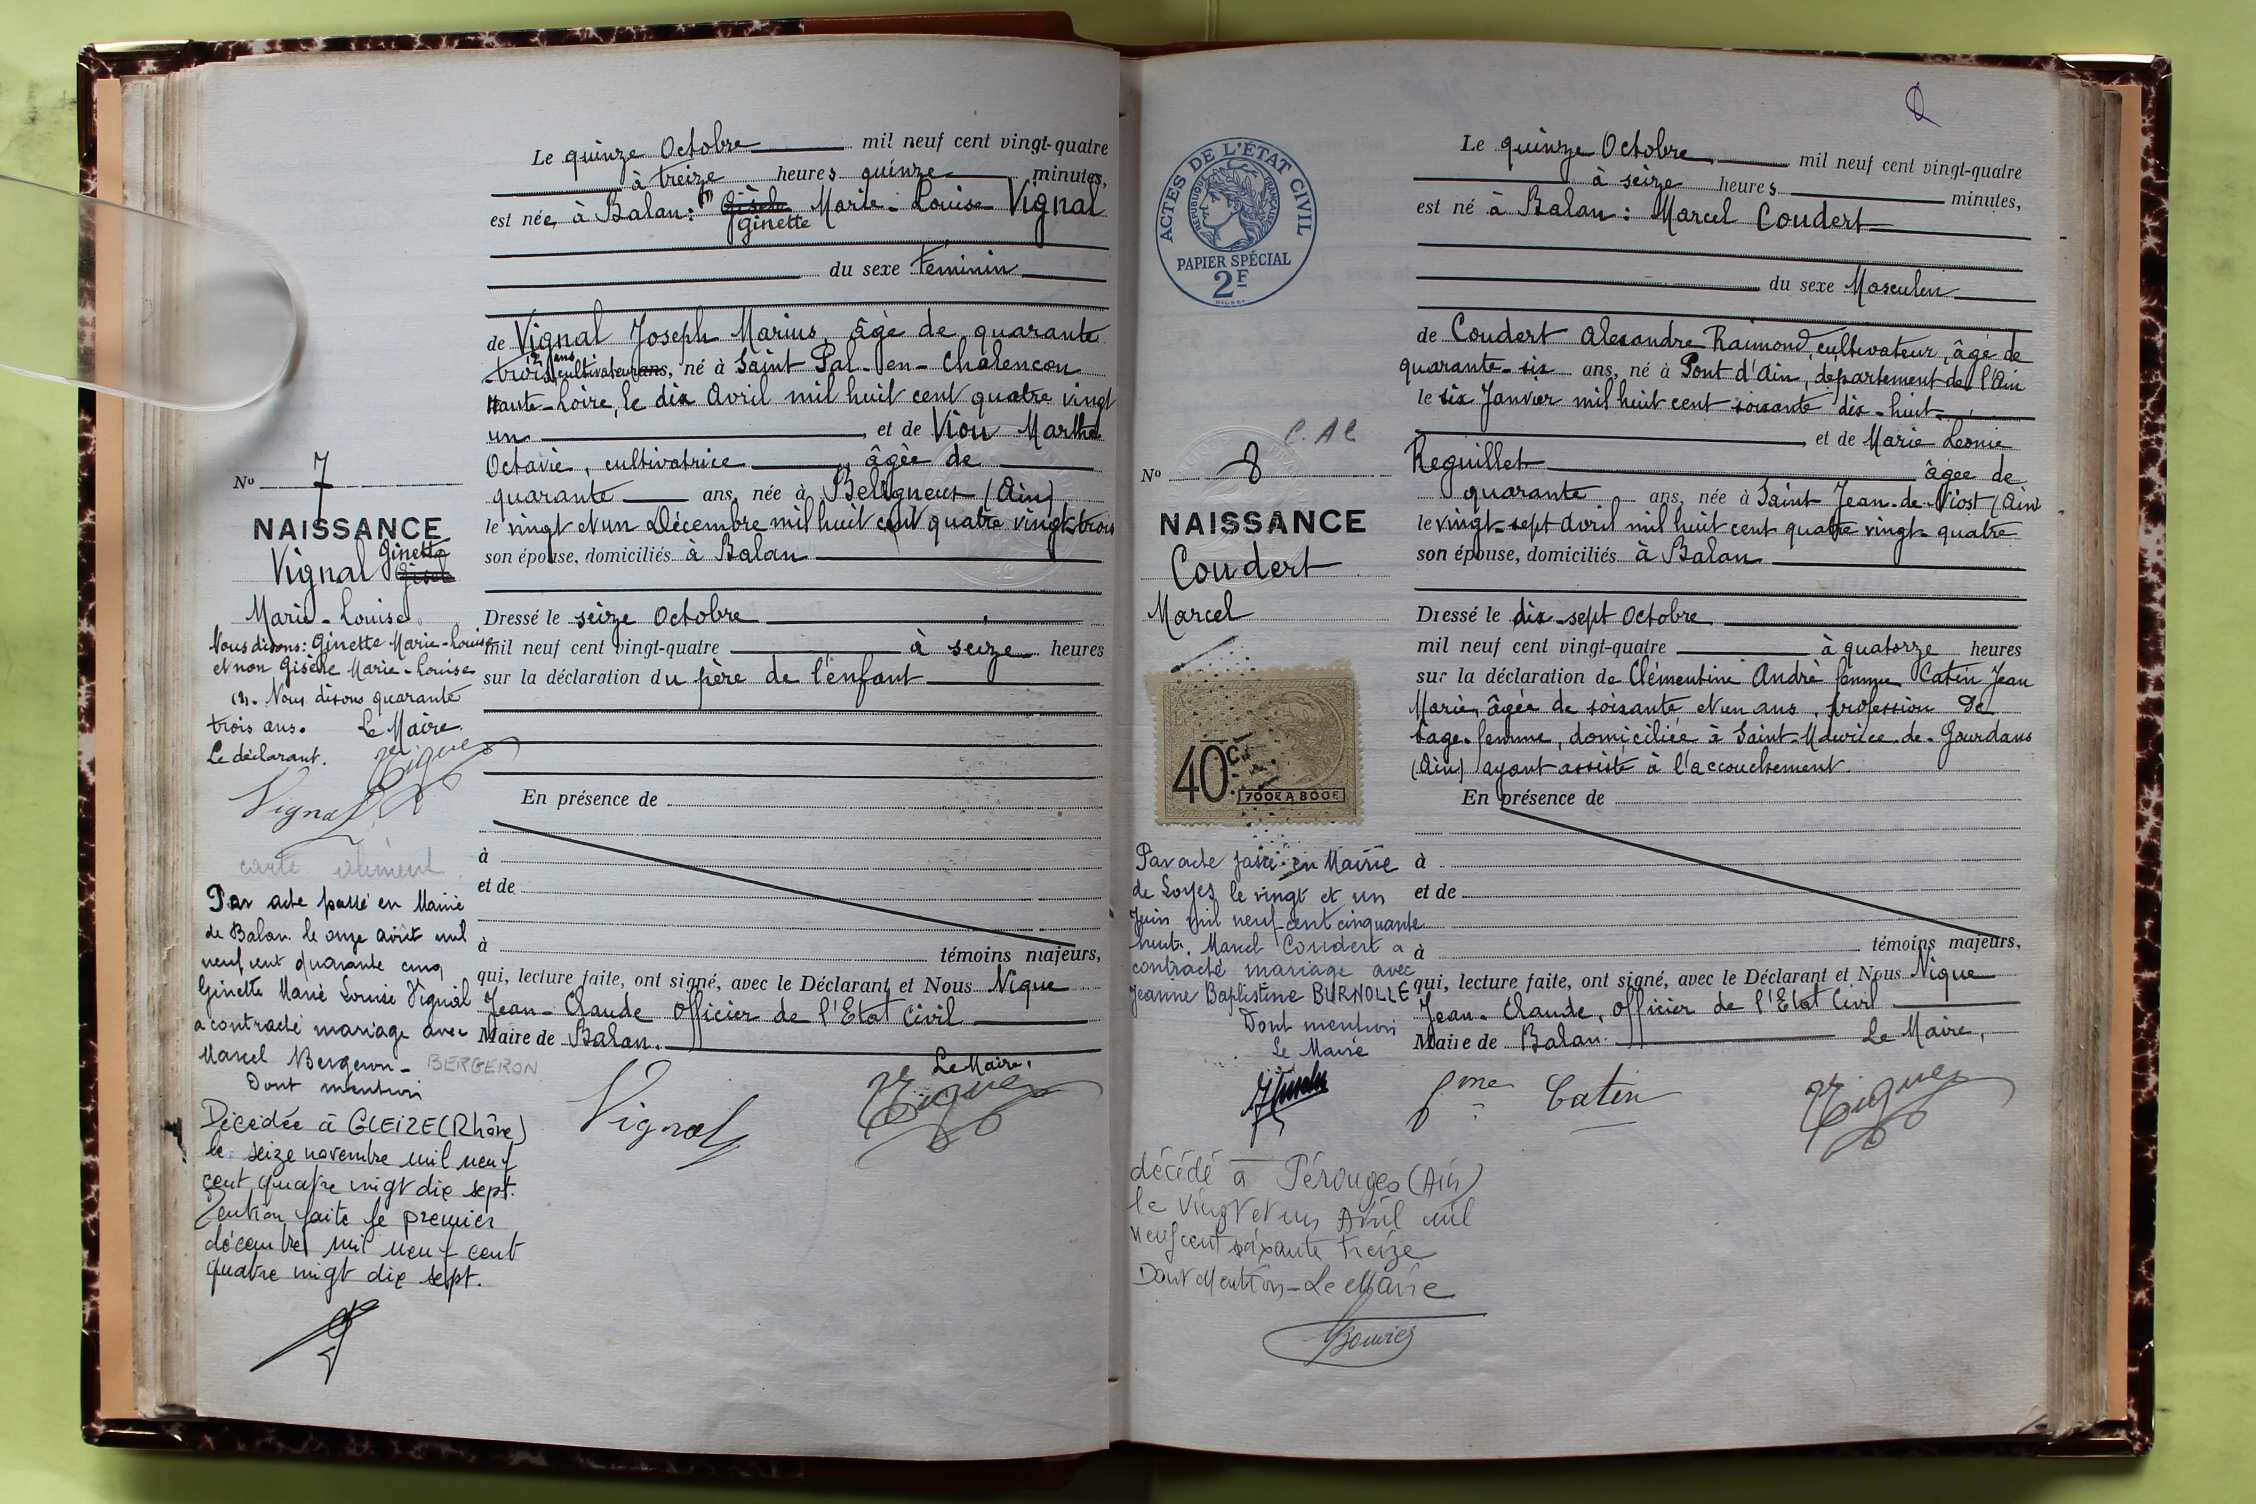 Le quinze Octobre mil neuf cent vingt-quatre
à treize heures quinze minutes,
est née, à Balan: (1) Gisèle Marie-Louise Vignal
Ginette
du sexe féminin
de Vignal Joseph Marius, âgé de quarante
trois, cultivateur ans, né à Saint Pal-en-Chalencon
(2) ans
Haute-Loire, le dix Avril mil huit cent quatre vingt
un, et de Viou Martha
Octavie, cultivatrice, âgée de
quarante ans, née à Beligneux (Ain)
le vingt et un Décembre mil huit cent quatre vingt-trois
son épouse, domiciliés à Balan
Dressé le seize Octobre
mil neuf cent vingt-quatre à seize heures
sur la déclaration du père de l'enfant
En présence de
à
et de
à témoins majeurs,
qui, lecture faite, ont signé, avec le Déclarant et Nous Nique
Jean-Claude Officier de l'Etat Civil
Maire de Balan.
Le Maire,
Vignal
Nique
No 7
NAISSANCE
Vignal Ginette
Gisèle
Marie-Louise
Nous disons: Ginette Marie-Louise
et non Gisèle Marie-Louise
(2). Nous disons quarante
trois ans. Le Maire.
Le déclarant. Nique
Vignal
carte
Par acte passé en Mairie
de Balan le onze août mil
neuf cent quarante cinq
Ginette Marie Louise Vignal
a contracté mariage avec
Marcel Bergeron - BERGERON
Dont mention
Décédée à GLEIZE (Rhône)
le seize novembre mil neuf
cent quatre vingt dix sept.
Mention faite le premier
décembre mil neuf cent
quatre vingt dix sept.
ACTES DE L'ÉTAT CIVIL
RÉPUBLIQUE FRANÇAISE
PAPIER SPÉCIAL
2F
Le quinze Octobre mil neuf cent vingt-quatre
à seize heures minutes,
est né à Balan: Marcel Coudert
du sexe Masculin
de Coudert Alexandre Raimond, cultivateur, âgé de
quarante-six ans, né à Pont d'Ain, département de l'Ain
le six Janvier mil huit cent soixante dix-huit
et de Marie Leonie
Reguillet âgée de
quarante ans, née à Saint Jean-de-Niost (Ain
le vingt-sept Avril mil huit cent quatre vingt-quatre
son épouse, domiciliés à Balan
Dressé le dix-sept Octobre
mil neuf cent vingt-quatre à quatorze heures
sur la déclaration de Clémentine Andrè femme Catin Jean
Marie, âgée de soixante et un ans, profession de
sage-femme, domiciliée à Saint-Maurice-de-Gourdans
(Ain) ayant assisté à l'accouchement.
En présence de
à
et de
à témoins majeurs,
qui, lecture faite, ont signé, avec le Déclarant et Nous Nique
Jean-Claude, Officier de l'Etat Civil
Maire de Balan. Le Maire,
fme Catin
Nique
C. AC
No 8
NAISSANCE
Coudert
Marcel
40c
700F A 800F
Par acte passé en Mairie
de Loyes le vingt et un
Juin mil neuf cent cinquante
huit. Marcel Coudert a
contracté mariage avec
Jeanne Baptistine BURNOLLE
Dont mention
Le Maire
décédé à Pérouges (Ain)
le vingt et un Avril mil
neuf cent soixante treize
Dont Mention - Le Maire
Bouvier